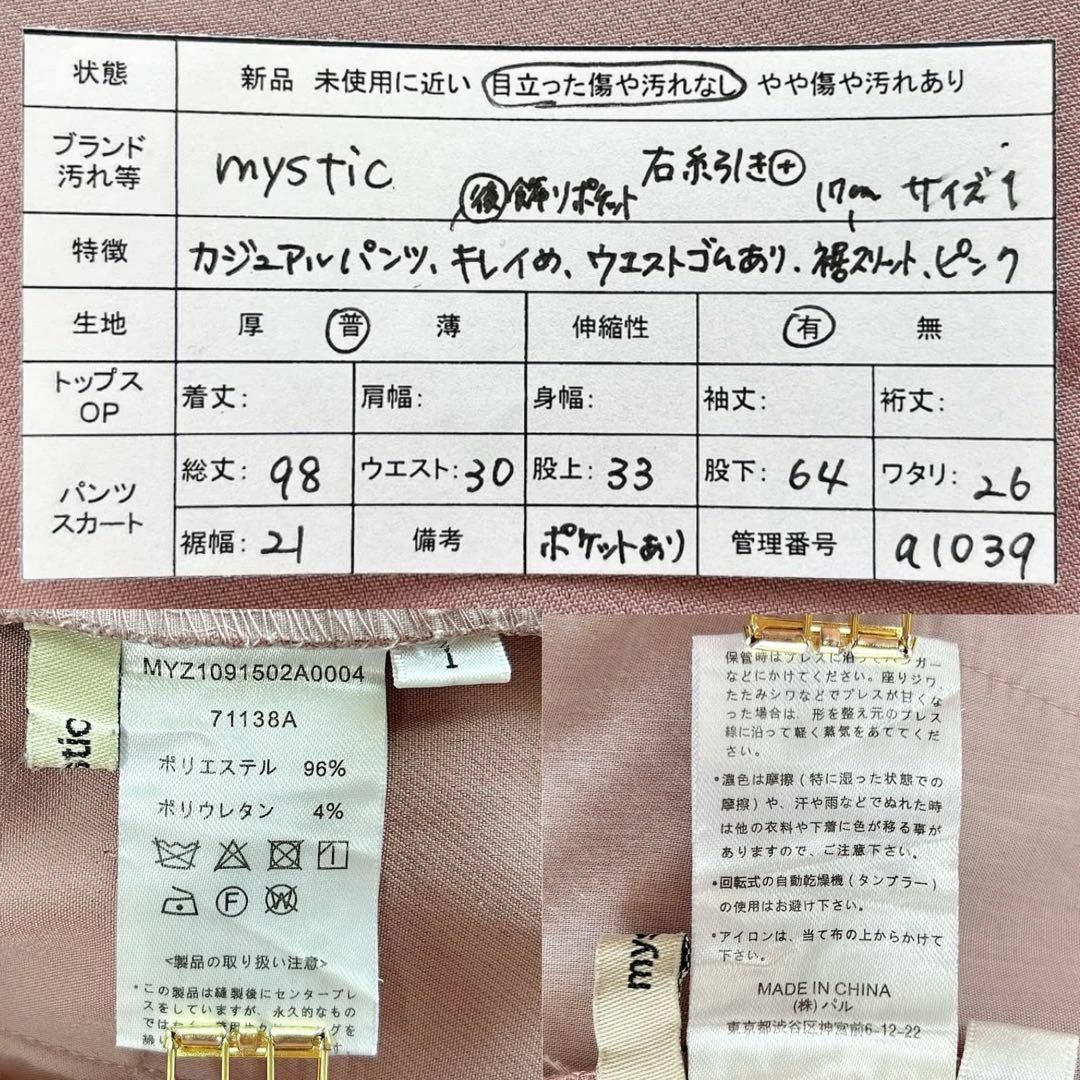 状態 新品 未使用に近い 目立った傷や汚れなし やや傷や汚れあり
ブランド
汚れ等
mystic 右糸引き+ サイズ1
後 飾りポケット 17cm
特徴 カジュアルパンツ、キレイめ、ウエストゴムあり、裾スリット、ピンク
生地 厚 普 薄 伸縮性 有 無
トップス
OP
着丈: 肩幅: 身幅: 袖丈: 裄丈:
パンツ
スカート
総丈: 98 ウエスト: 30 股上: 33 股下: 64 ワタリ: 26
裾幅: 21 備考 ポケットあり 管理番号 a1039
stic
1
MYZ1091502A0004
71138A
ポリエステル 96%
ポリウレタン 4%
F
W
<製品の取り扱い注意>
・この製品は縫製後にセンタープレ
スをしていますが、永久的なもの
では
保管時はプレスに沿ってハンガー
などにかけてください。座りジワ、
たたみシワなどでプレスが甘くな
った場合は、形を整え元のプレス
線に沿って軽く蒸気をあててくだ
さい。
・濃色は摩擦(特に湿った状態での
摩擦)や、汗や雨などでぬれた時
は他の衣料や下着に色が移る事が
ありますので、ご注意下さい。
・回転式の自動乾燥機(タンブラー)
の使用はお避け下さい。
・アイロンは、当て布の上からかけて
下さい。
MADE IN CHINA
(株)パル
東京都渋谷区神宮前6-12-22
mys